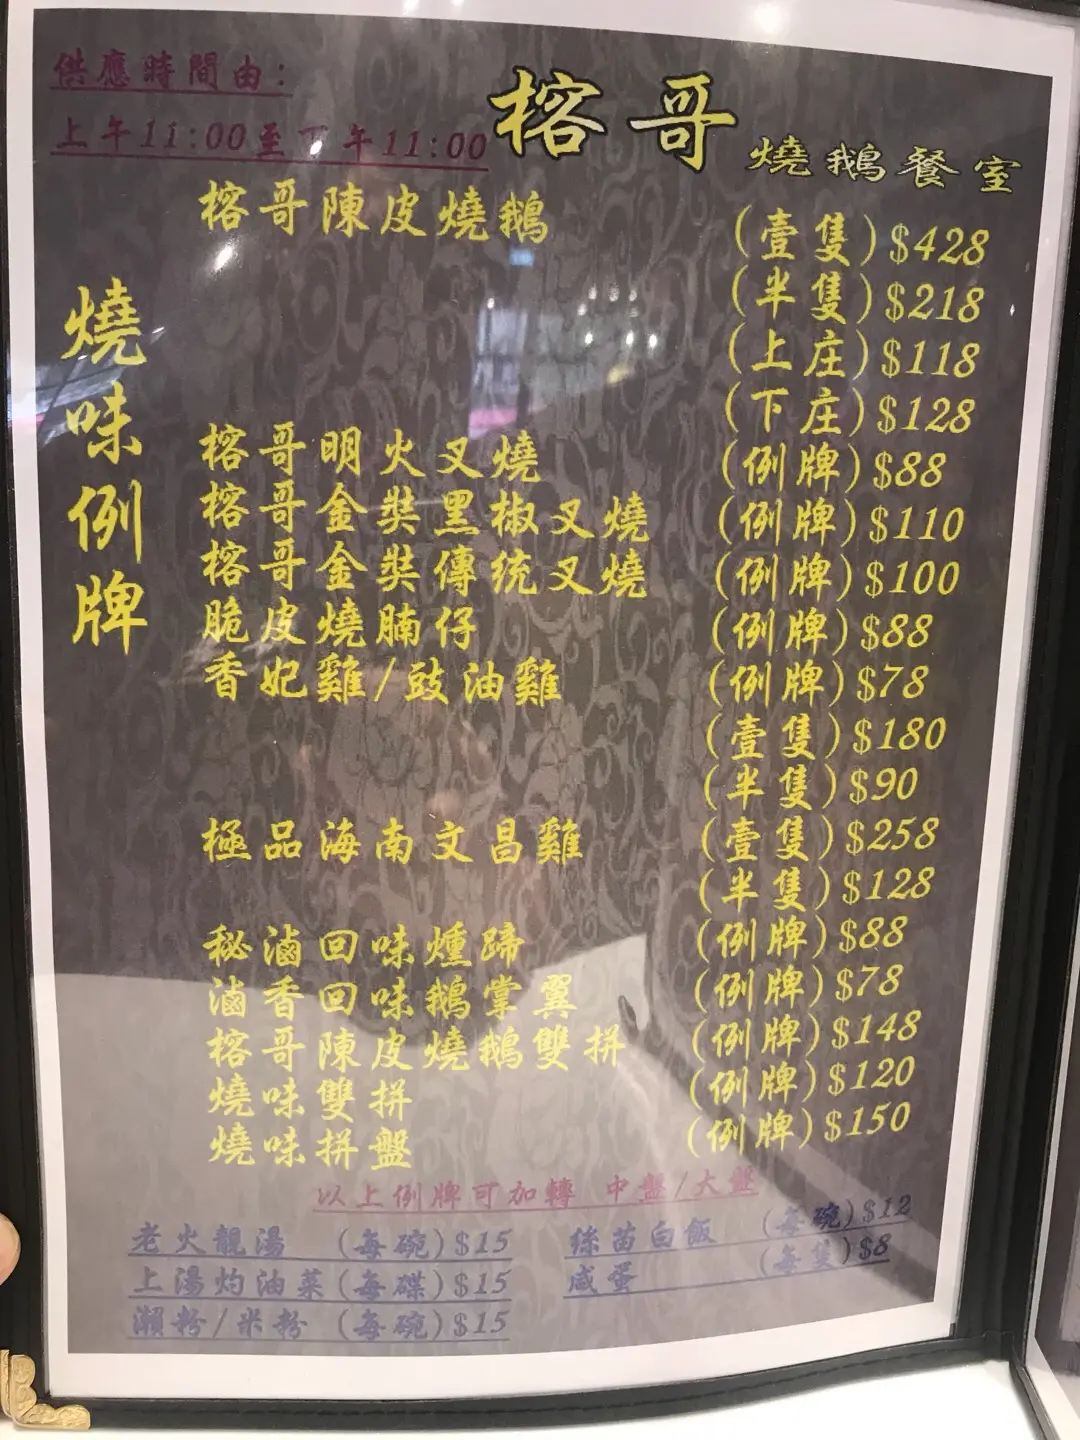 供應時間由:
上午11:00至下午11:00
榕哥
燒鵝餐室
燒味例牌
榕哥陳皮燒鵝 (壹隻)$428
(半隻)$218
(上庄)$118
(下庄)$128
榕哥明火叉燒 (例牌)$88
榕哥金裝黑椒叉燒 (例牌)$110
榕哥金裝傳統叉燒 (例牌)$100
脆皮燒腩仔 (例牌)$88
香妃雞/豉油雞 (例牌)$78
(壹隻)$180
(半隻)$90
極品海南文昌雞 (壹隻)$258
(半隻)$128
秘滷回味燻蹄 (例牌)$88
滷香回味鵝掌翼 (例牌)$78
榕哥陳皮燒鵝雙拼 (例牌)$148
燒味雙拼 (例牌)$120
燒味拼盤 (例牌)$150
以上例牌可加轉 中盤/大盤
老火靚湯 (每碗)$15
上湯灼油菜(每碟)$15
瀨粉/米粉 (每碗)$15
絲苗白飯 (每碗)$12
咸蛋 (每隻)$8